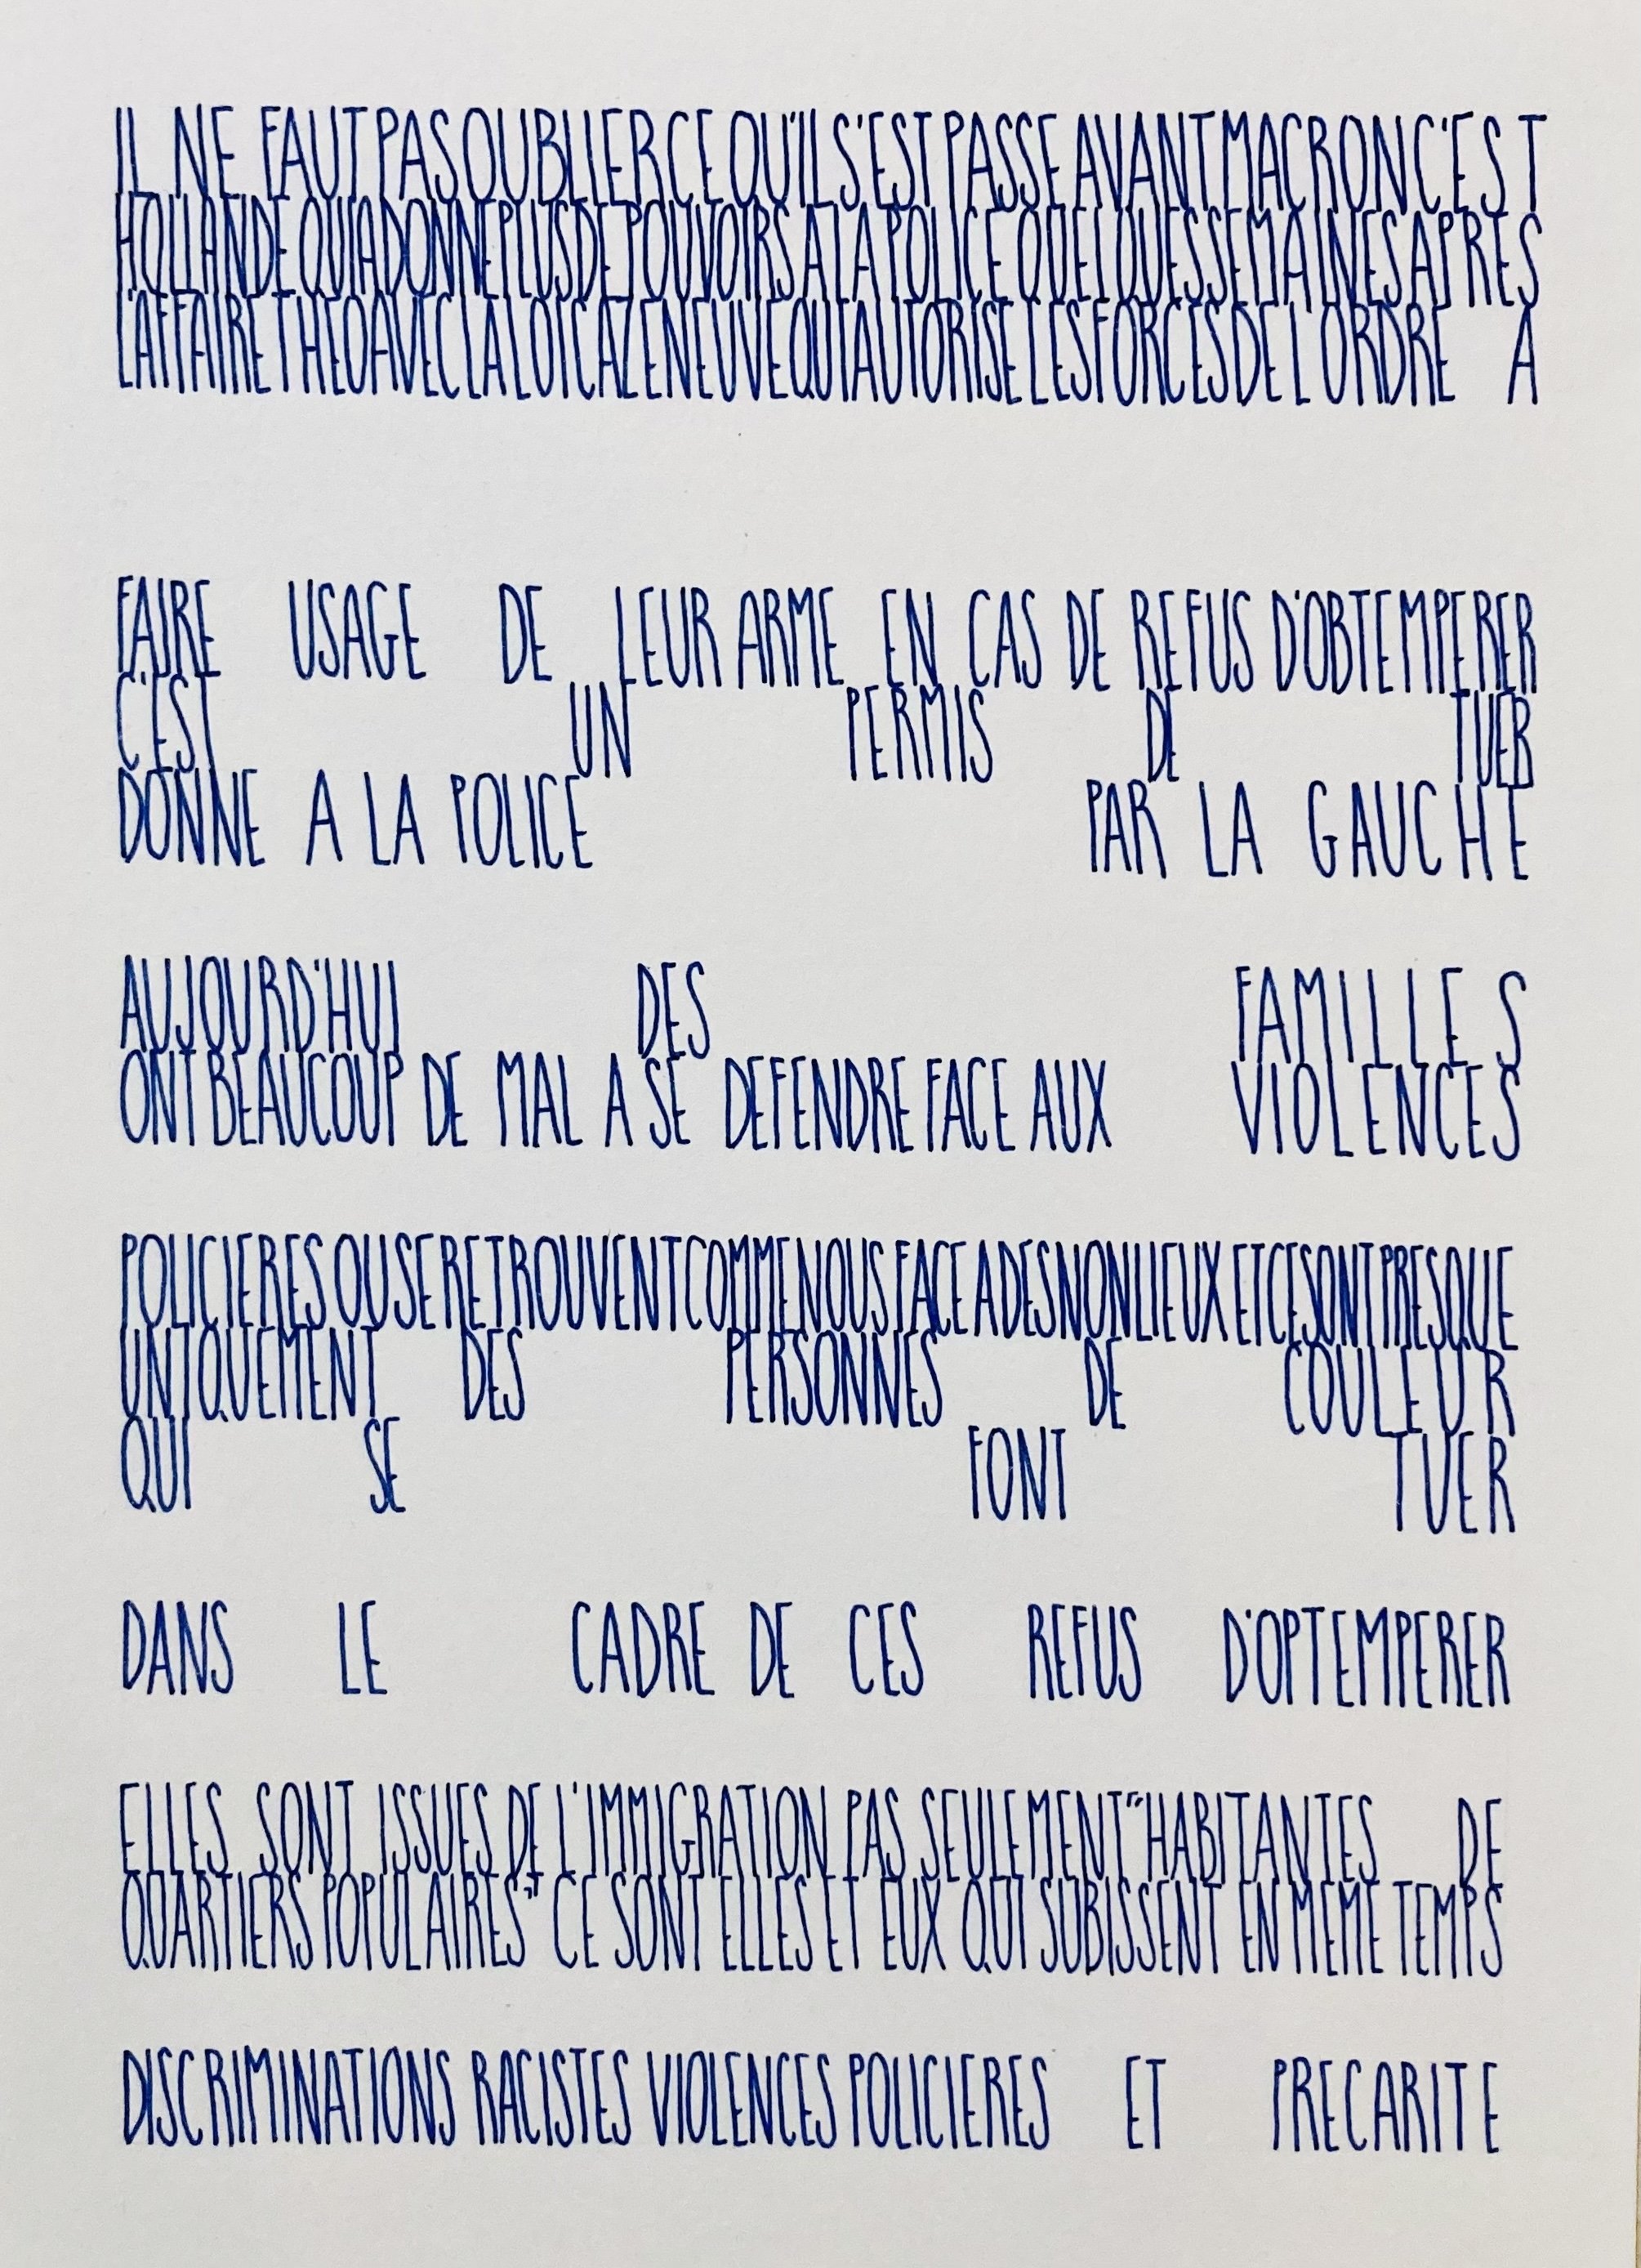 IL NE FAUT PAS OUBLIER CE QU'IL S'EST PASSE AVANT MACRON C'EST
HOLLANDE QUI A DONNE PLUS DE POUVOIRS A LA POLICE QUELQUES SEMAINES APRES
L'AFFAIRE THEO AVEC LA LOI CAZENEUVE QUI AUTORISE LES FORCES DE L'ORDRE A
FAIRE USAGE DE LEUR ARME EN CAS DE REFUS D'OBTEMPERER
C'EST UN PERMIS DE TUER
DONNE A LA POLICE PAR LA GAUCHE
AUJOURD'HUI DES FAMILLES
ONT BEAUCOUP DE MAL A SE DEFENDRE FACE AUX VIOLENCES
POLICIERES OU SE RETROUVENT COMME NOUS FACE A DES NON LIEUX ET CE SONT PRESQUE
UNIQUEMENT DES PERSONNES DE COULEUR
QUI SE FONT TUER
DANS LE CADRE DE CES REFUS D'OPTEMPERER
ELLES SONT ISSUES DE L'IMMIGRATION PAS SEULEMENT "HABITANTES DE
QUARTIERS POPULAIRES" CE SONT ELLES ET EUX QUI SUBISSENT EN MEME TEMPS
DISCRIMINATIONS RACISTES VIOLENCES POLICIERES ET PRECARITE